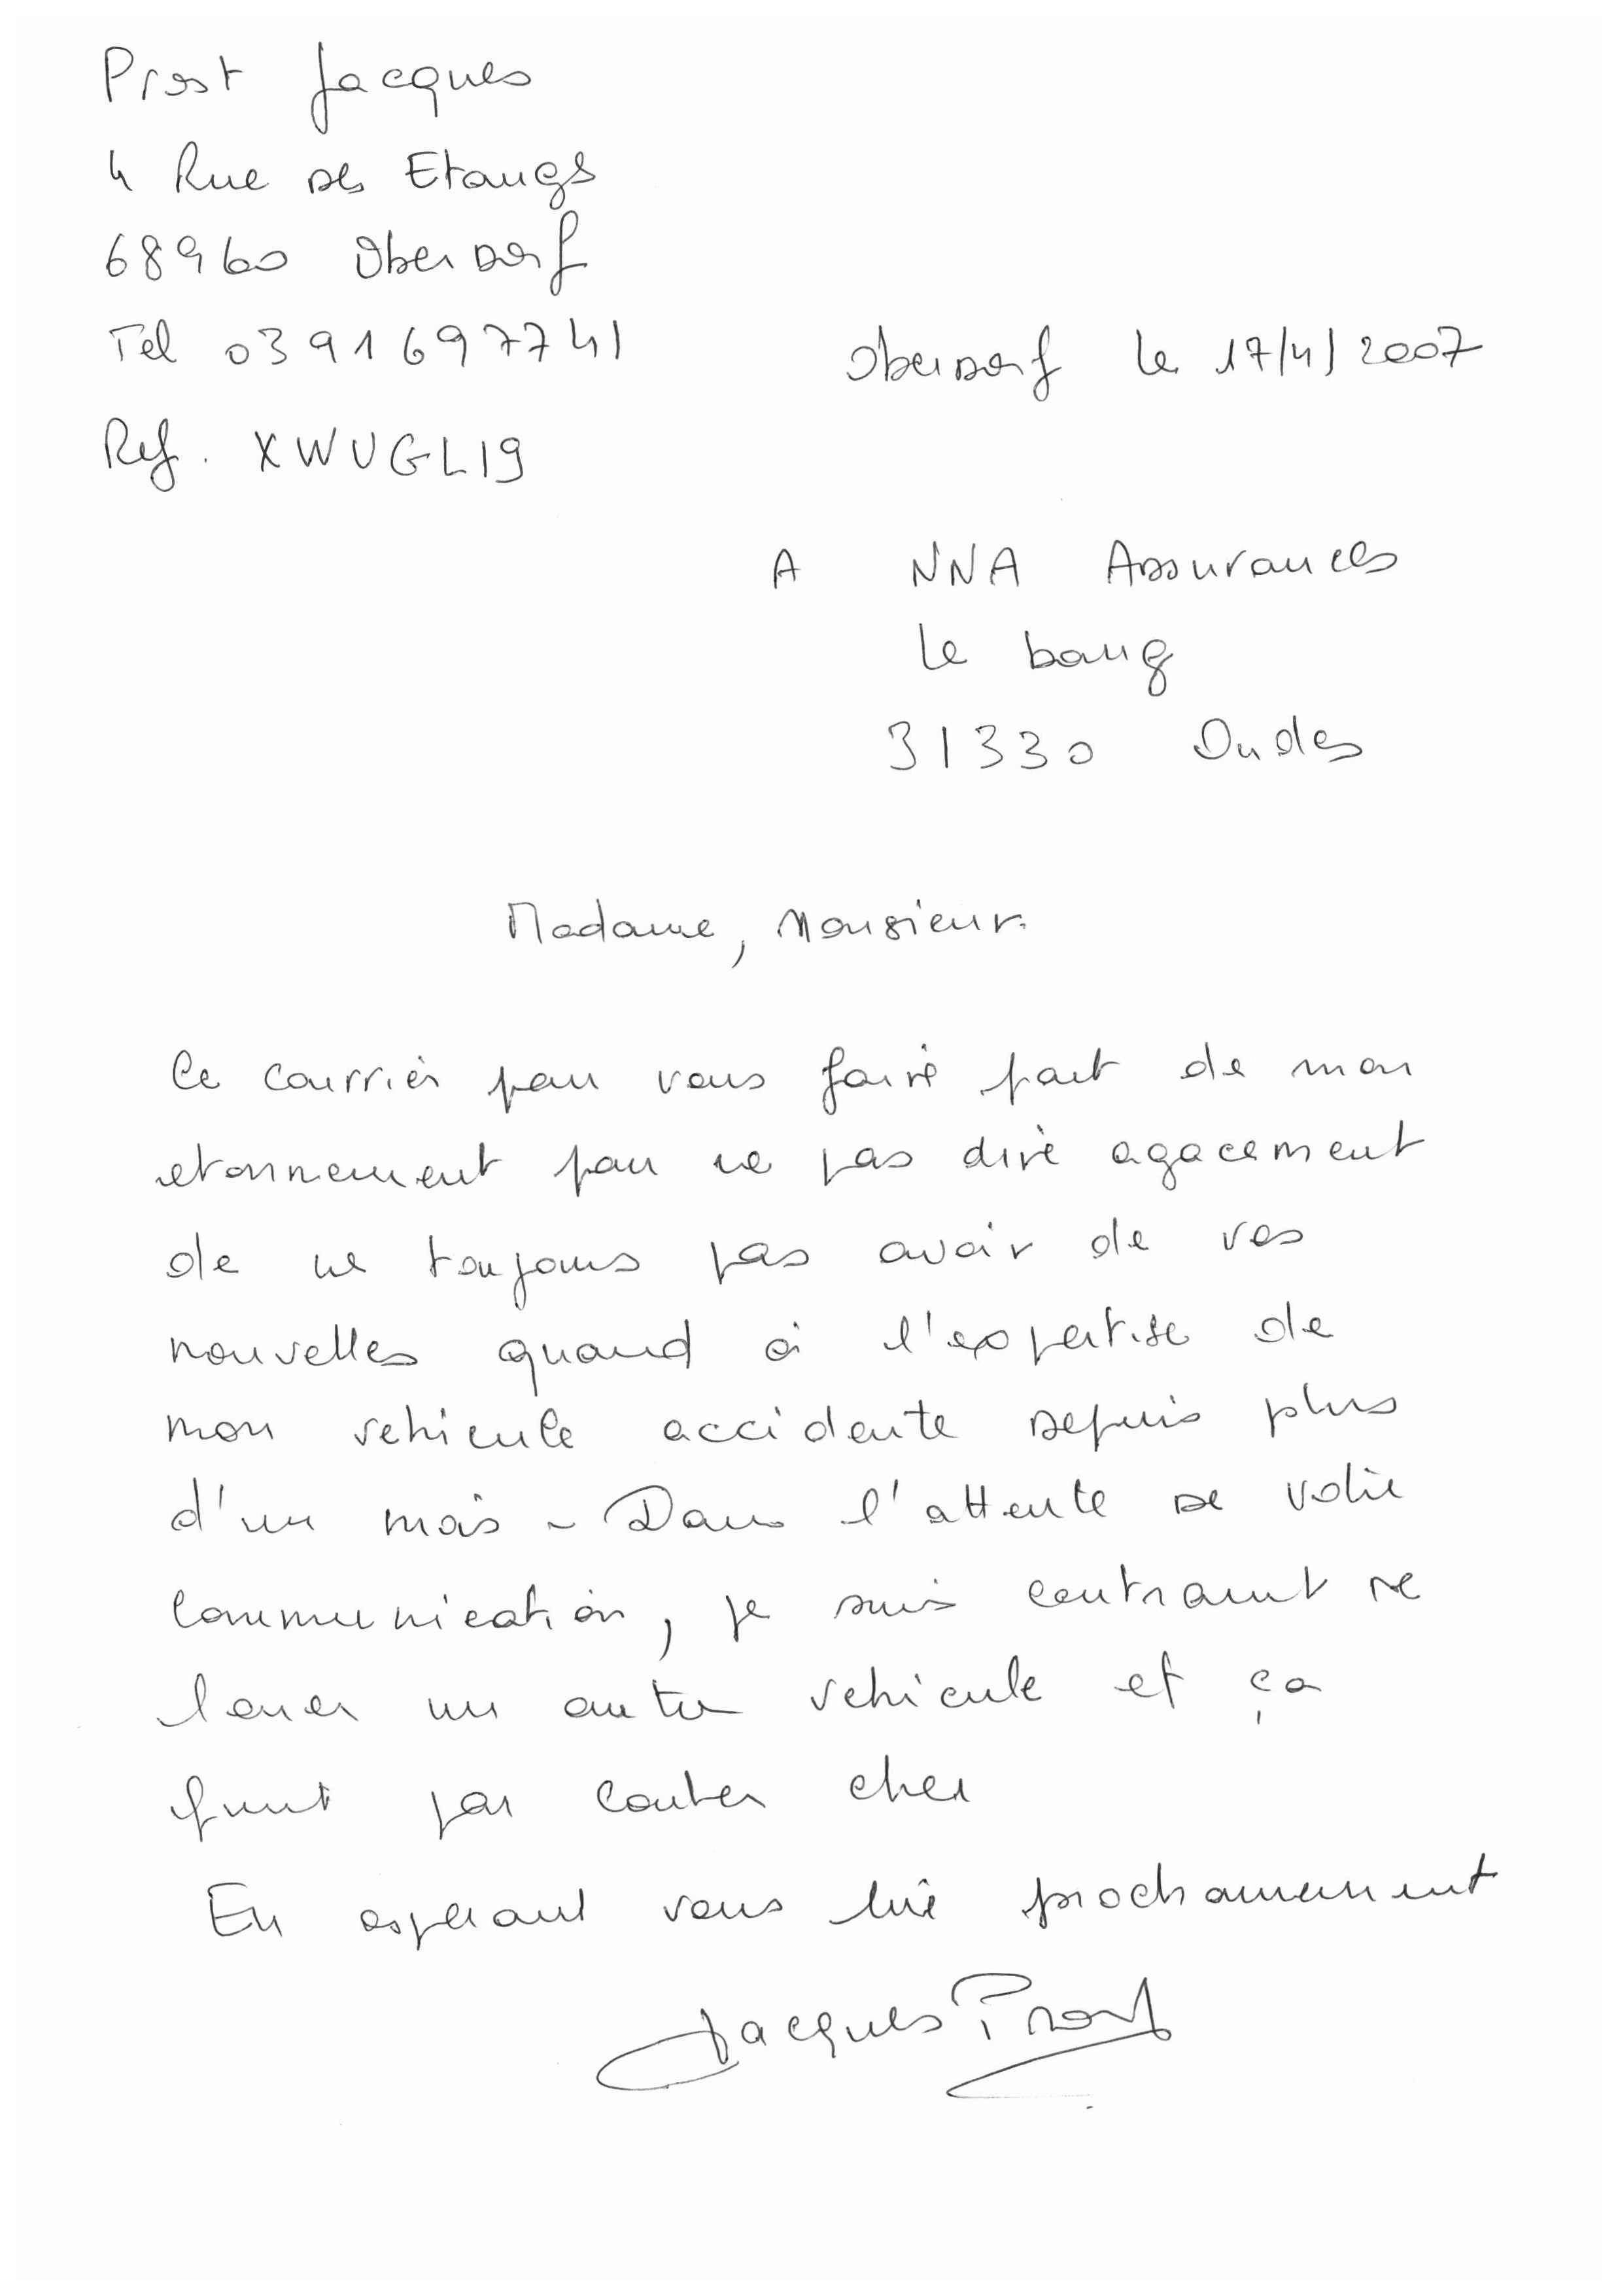 Prost Jacques
4 Rue des Etangs
68960 Oberdorf
Tel 0391697741
Oberdorf le 17/4/2007
Ref. XWUGL19
A NNA Assurances
le bourg
31330 Ondes
Madame, Monsieur.
Ce courrier pour vous faire part de mon
etonnement pour ne pas dire agacement
de ne toujours pas avoir de vos
nouvelles quand à l'expertise de
mon vehicule accidente depuis plus
d'un mois - Dans l'attente de votre
communication, je suis contraint de
louer un autre vehicule et ça
finit par couter cher
En esperant vous lire prochainement
Jacques Prost